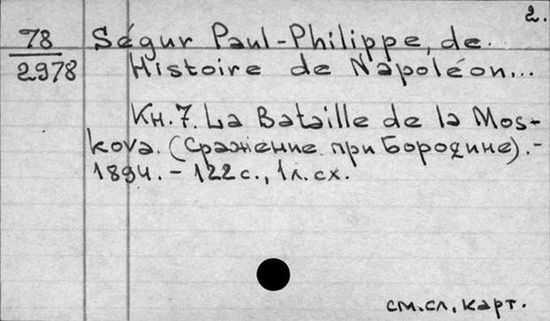 2.
78 Ségur Paul-Philippe, de.
2978 Histoire de Napoléon...
Кн. 7. La Bataille de la Mos-
kova. (Сражение при Бородине).-
1894. - 122 с., 1 л. сх.
см. сл. карт.